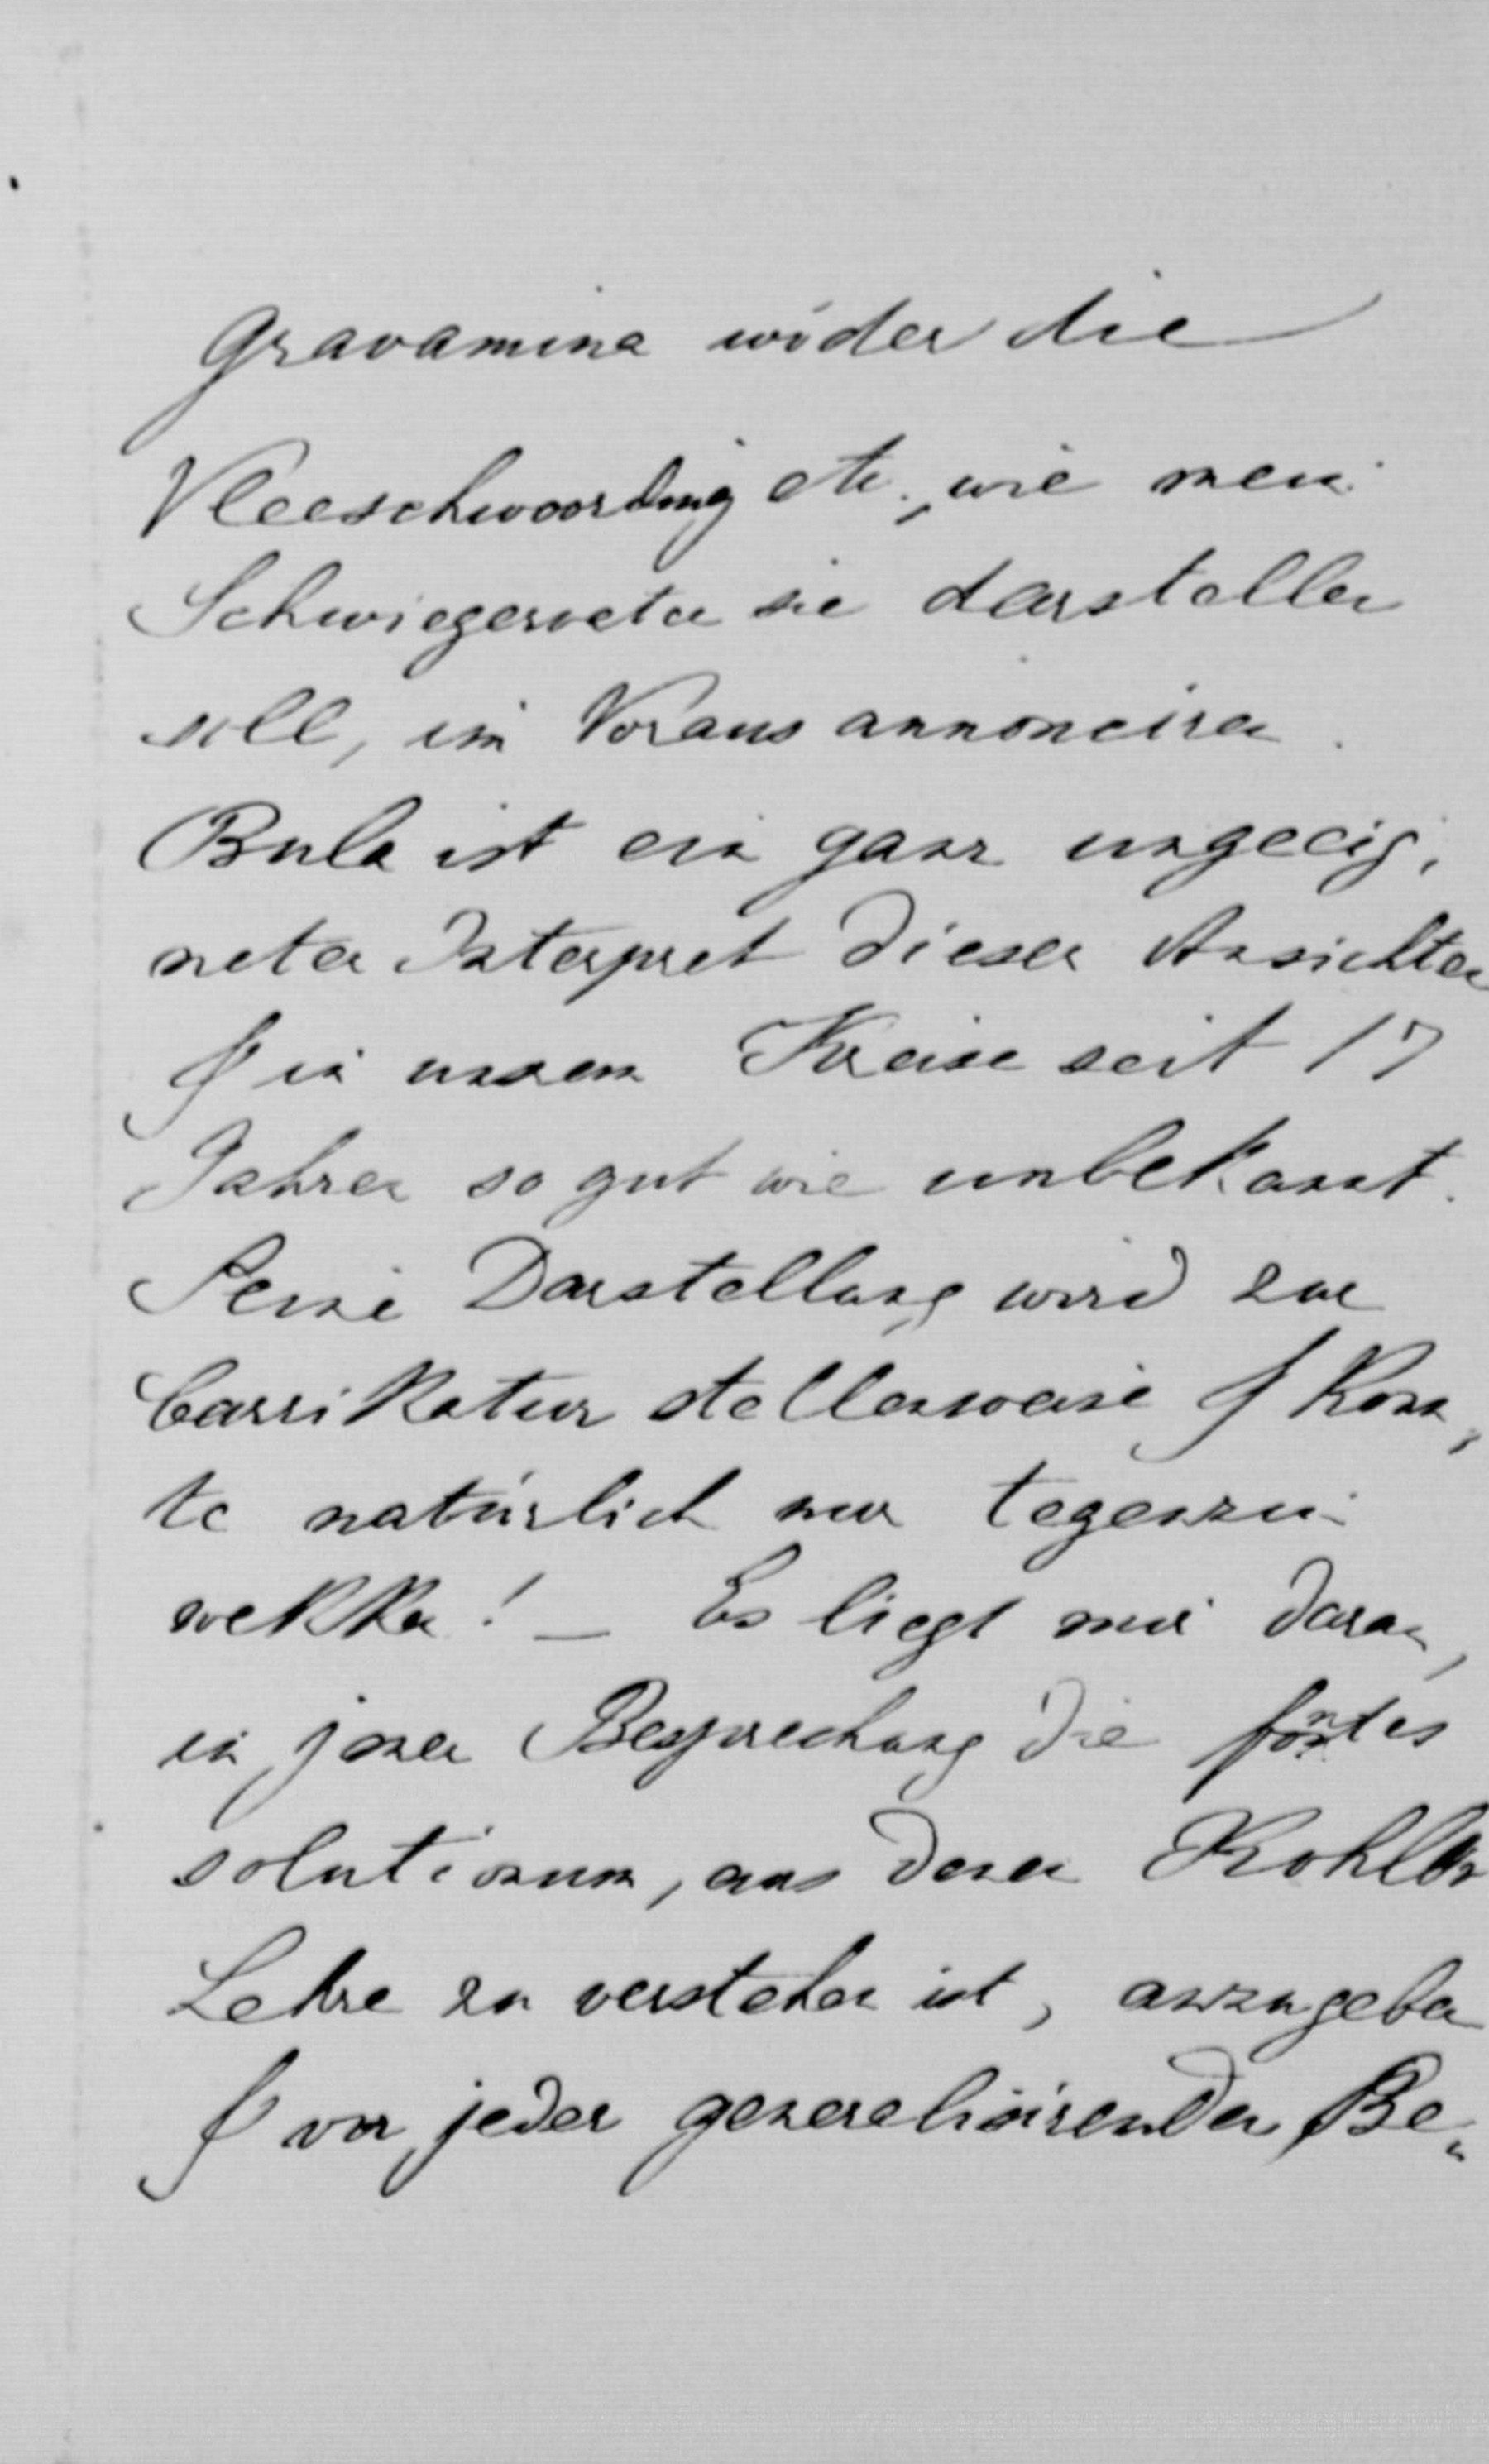 Gravamina wider die
Vleeschwoording etc., wie mein
Schwiegervater sie darstellen
soll, im Voraus annonciren.
Bula ist ein ganz ungeeig,
neter Interpret dieser Ansichten
& in unsren Kreise seit 17
Jahren so gut wie unbekannt.
Seine Darstellung wird zur
Carrikatur stellenweise & konn,
te natürlich nur tegenzin
wekken! — Es liegt mir daran,
in jener Besprechung die fontes
solutionum, aus denen Kohlbr
Lehre zu verstehen ist, anzugeben
& vor jeder generalisirenden Be„